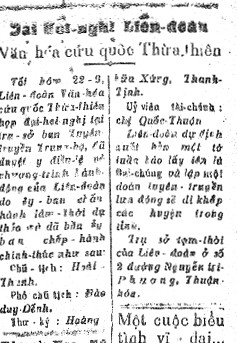 Đại Hội-nghị Liên-đoàn
Văn hóa cứu quốc Thừa-thiên
Tối hôm 22-9,
Liên-đoàn Văn-hóa
cứu quốc Thừa-thiên
họp đại-hội-nghị tại
trụ-sở ban Tuyên
Truyền Trung-bộ, đã
duyệt y điều-lệ và
chương-trình hành-
động của Liên-đoàn
do ủy-ban chấp
hành lâm-thời dự
thảo và đã bầu ủy
ban chấp-hành
chính-thức như sau:
Chủ-tịch: Hoài-
Thanh.
Phó chủ tịch: Đào
duy-Dếnh.
Thư-ký: Hoàng
hữu Xứng, Thanh-
Tịnh.
Uỷ viên tài-chính:
chị Quốc Thuận
Liên-đoàn dự định
xuất bản một tờ
tuần báo lấy tên là
Đại-chúng và lập một
đoàn tuyên-truyền
lưu động sẽ đi khắp
các huyện trong
tỉnh.
Trụ sở tạm-thời
của Liên-đoàn ở số
2 đường Nguyễn tri-
Phương, Thuận-
hóa.
Một cuộc biểu
tình vĩ đại...